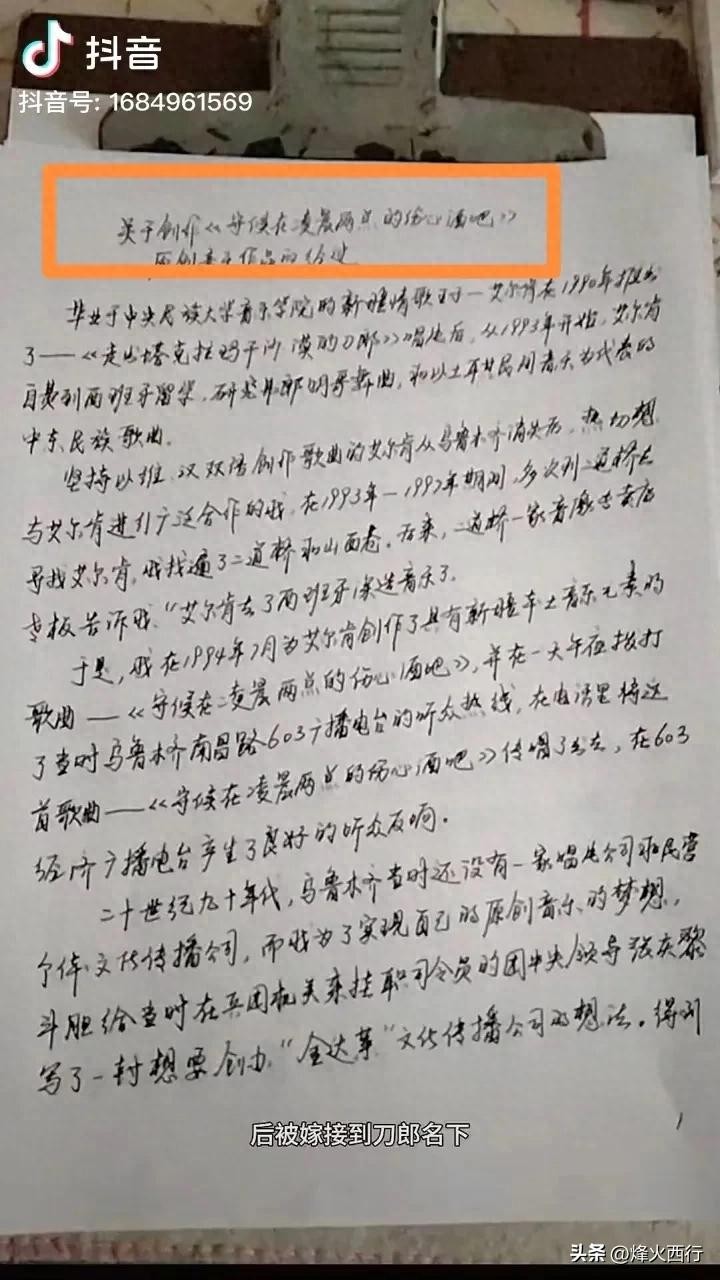 抖音
抖音号: 1684961569
关于创作《守候在凌晨两点的伤心酒吧》
原创音乐作品的经过
毕业于中央民族大学音乐学院的新疆情歌王子—艾尔肯在1990年推出
了——《走出塔克拉玛干沙漠的刀郎》唱片后，从1993年开始，艾尔肯
自费到西班牙留学，研究弗郎明哥舞曲，和以土耳其民间音乐为代表的
中东民族歌曲。
坚持以维、汉双语创作歌曲的艾尔肯从乌鲁木齐消失后，热切想
与艾尔肯进行广泛合作的我，在1993年—1997年期间，多次到二道桥去
寻找艾尔肯，我找遍了二道桥和山西巷。后来，二道桥一家音像专卖店
老板告诉我，“艾尔肯去了西班牙深造音乐了。
于是，我在1994年7月为艾尔肯创作了具有新疆本土音乐元素的
歌曲——《守候在凌晨两点的伤心酒吧》，并在一天午夜拨打
了当时乌鲁木齐南昌路603广播电台的听众热线，在电话里将这
首歌曲——《守候在凌晨两点的伤心酒吧》传唱了出去，在603
经济广播电台产生了良好的听众反响。
二十世纪九十年代，乌鲁木齐当时还没有一家唱片公司和民营
个体文化传播公司，而我为了实现自己的原创音乐的梦想，
斗胆给当时在兵团机关来挂职司令员的团中央领导张庆黎
写了一封想要创办“全达莱”文化传播公司的想法。得到
1
后被嫁接到刀郎名下
头条 @烽火西行